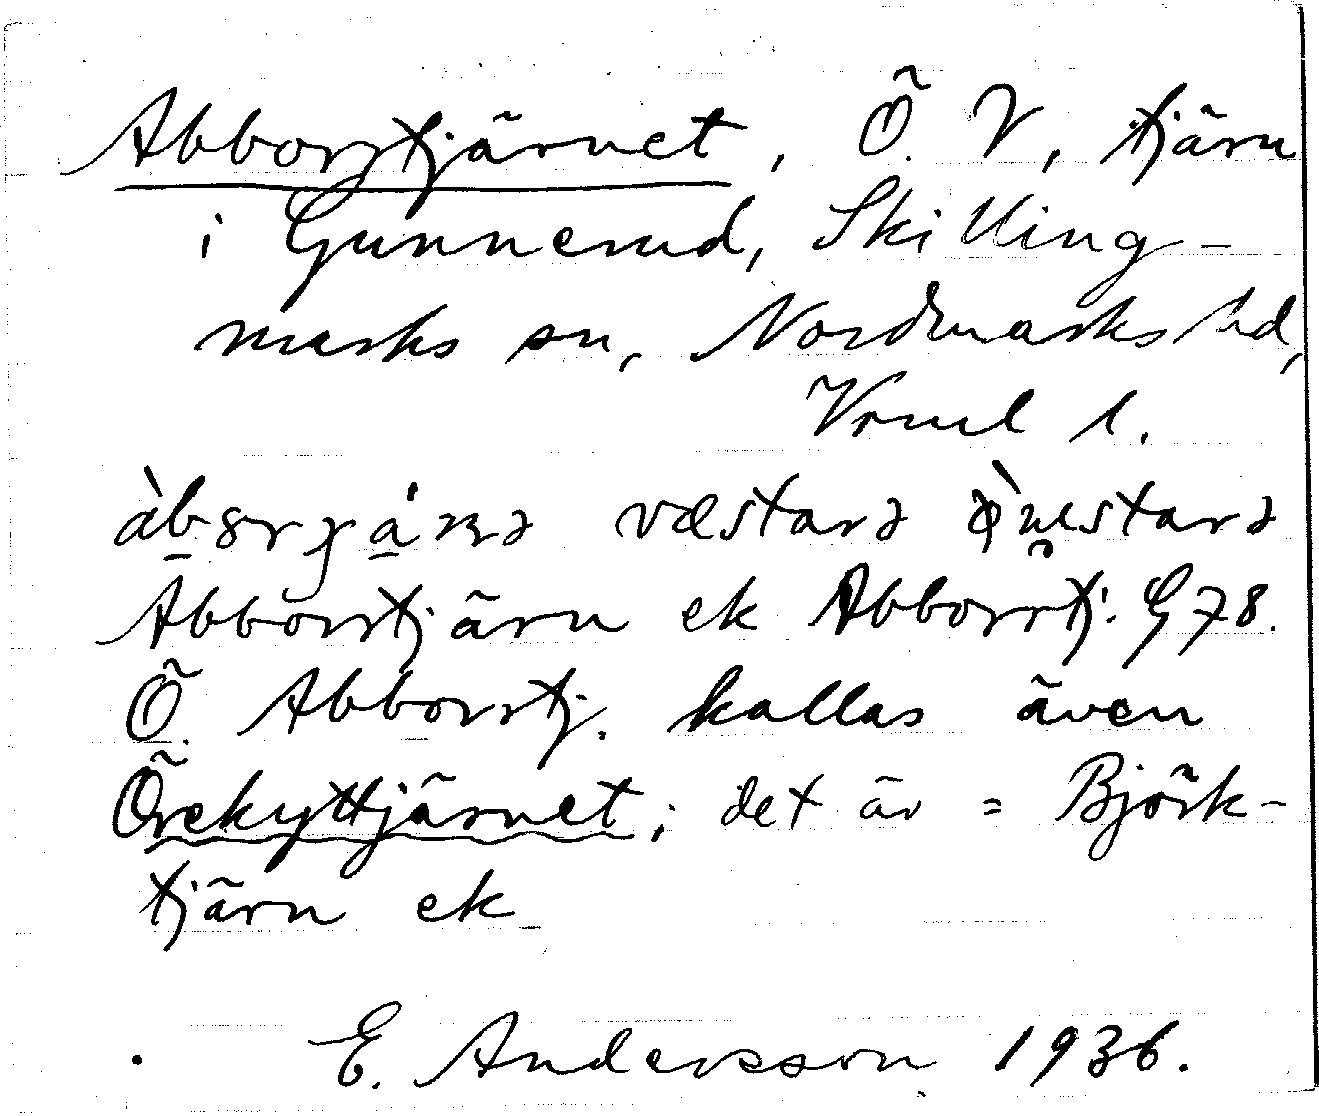 Abborrtjärnet, Ö. V, tjärn
i Gunnerud, Skilling-
marks sn, Nordmarks hd,
Vrml l.
væstarə
Abborrtjärn ek Abborrtj. G 78.
Ö. Abborrtj. kallas även
Örekyttjärnet; det är = Björk-
tjärn ek
E. Andersson 1936.